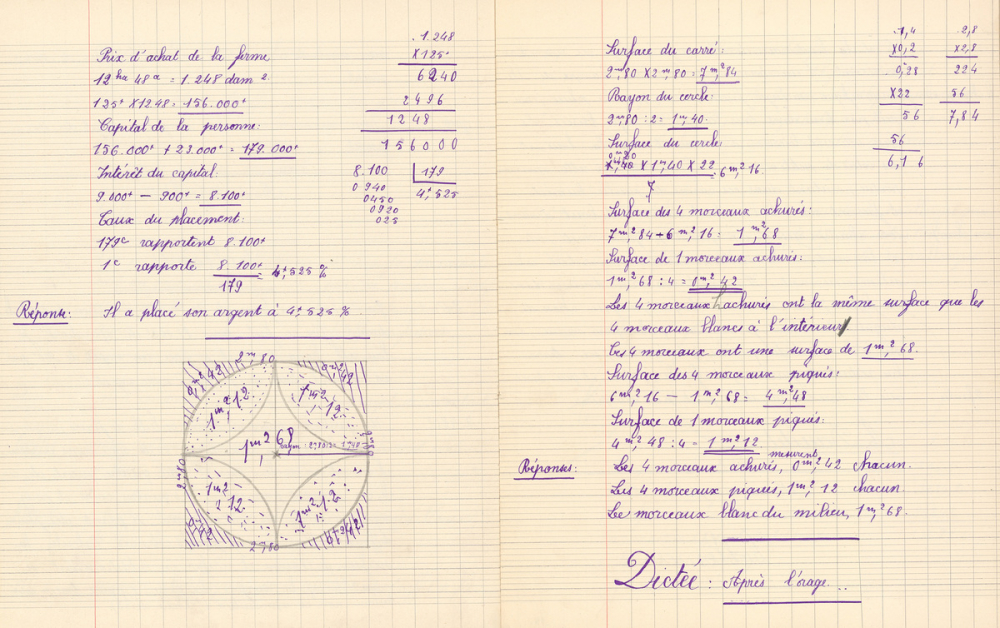 Prix d'achat de la ferme
12 ha 48 a = 1.248 dam 2
125 f X 1248 = 156.000 f
Capital de la personne:
156.000 f + 23.000 f = 179.000 f
Intérêt du capital:
9.000 f — 900 f = 8.100 f
Taux du placement:
179 c rapportent 8.100 f
1 c rapporte 8.100 f = 4 f, 525 %
179
1.248
X 125
6240
2496
1248
156000
8.100 179
0940 4 f, 525
0450
0920
025
Réponse: Il a placé son argent à 4 f 525 %
2 m, 80
0 m 2 42
0 m 2 42
1 m 2 12
1 m 2 12
1 m 2 68
rayon : 2 m 80 : 2 = 1 m 40
2 m 80
2 m 80
1 m 2 12
1 m 2 12
0 m 2 42
0 m 2 42
2 m, 80
Surface du carré:
2 m, 80 X 2 m, 80 = 7 m 2, 84
Rayon du cercle:
2 m, 80 : 2 = 1 m, 40
Surface du cercle
0 m, 20
1 m, 40 X 1 m, 40 X 22 = 6 m 2 16
7
1,4
X 0,2
0,28
X 22
56
56
6,16
2,8
X 2,8
224
56
7,84
Surface des 4 morceaux achurés:
7 m 2, 84 + 6 m 2, 16 = 1 m 2, 68
Surface de 1 morceaux achurés:
1 m 2, 68 : 4 = 0 m 2, 42
Les 4 morceaux hachurés ont la même surface que les
4 morceaux blancs à l'intérieur
Ces 4 morceaux ont une surface de 1 m 2, 68.
Surface des 4 morceaux piqués:
6 m 2, 16 — 1 m 2, 68 = 4 m 2, 48
Surface de 1 morceaux piqués:
4 m 2, 48 : 4 = 1 m 2, 12
mesurent
Réponses: Les 4 morceaux achurés, 0 m 2, 42 chacun.
Les 4 morceaux piqués, 1 m 2, 12 chacun
Le morceaux blanc du milieu, 1 m 2, 68.
Dictée : Après l'orage...